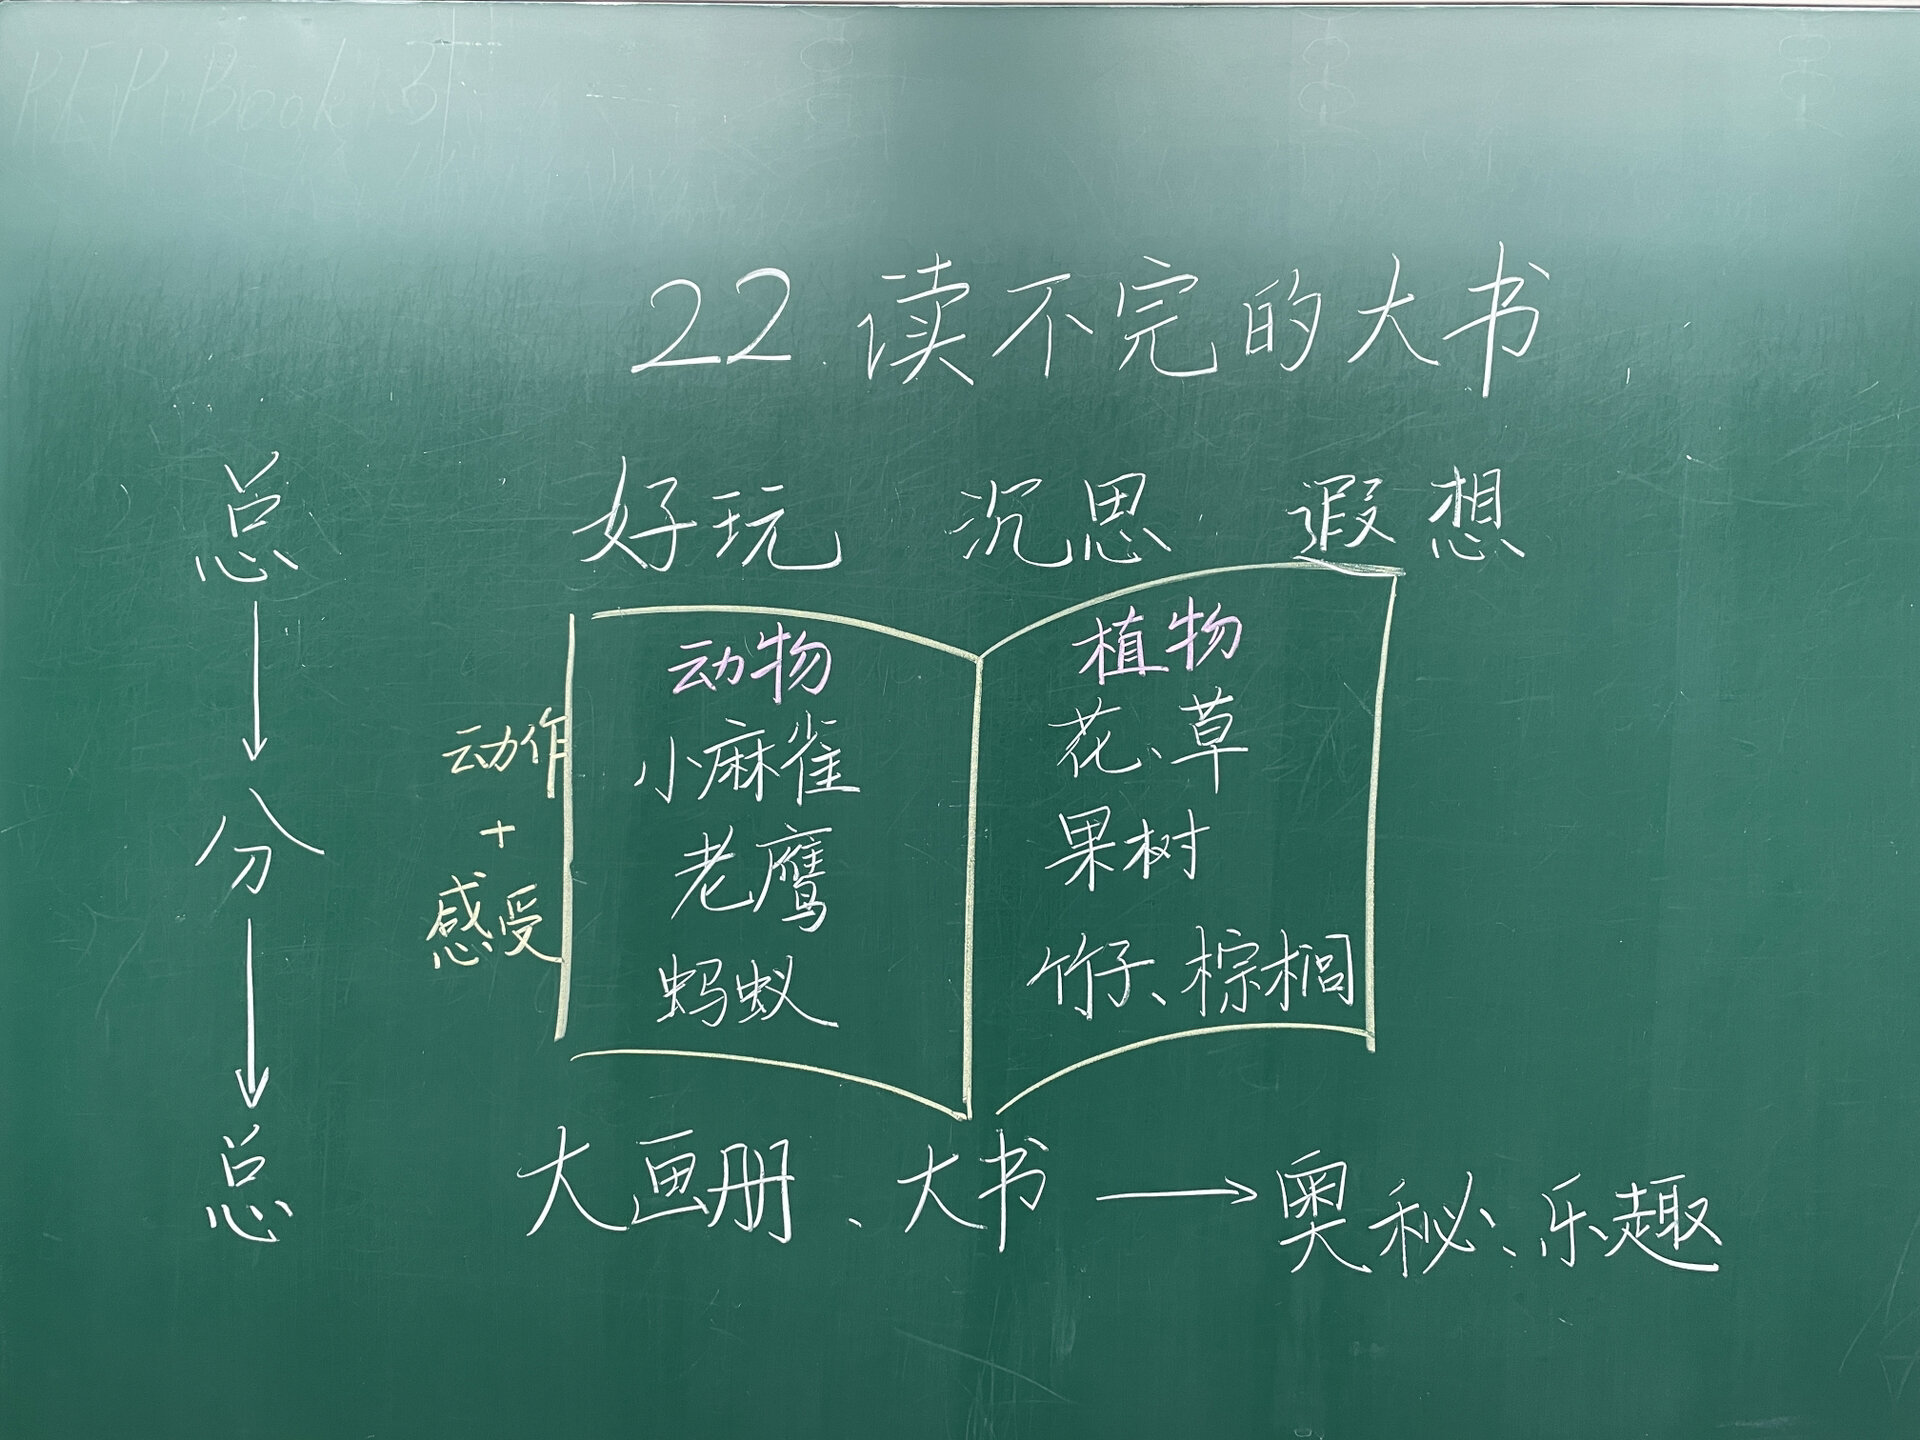 22.读不完的大书
总
好玩 沉思 遐想
动物
植物
动作
+
感受
小麻雀
花、草
分
老鹰
果树
蚂蚁
竹子、棕榈
总
大画册、大书→奥秘、乐趣